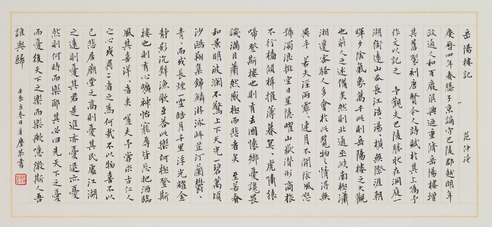 岳陽樓記
范仲淹
慶曆四年春滕子京謫守巴陵郡越明年
政通人和百廢具興迺重脩岳陽樓增
其舊制刻唐賢今人詩賦於其上屬予
作文以記之予觀夫巴陵勝狀在洞庭一
湖銜遠山吞長江浩浩湯湯橫無際涯朝
暉夕陰氣象萬千此則岳陽樓之大觀
也前人之述備矣然則北通巫峽南極瀟
湘遷客騷人多會於此覽物之情得無
異乎若夫霪雨霏霏連月不開陰風怒
號濁浪排空日星隱曜山嶽潛形商旅
不行檣傾楫摧薄暮冥冥虎嘯猿
啼登斯樓也則有去國懷鄉憂讒畏
譏滿目蕭然感極而悲者矣至若春
和景明波瀾不驚上下天光一碧萬頃
沙鷗翔集錦鱗游泳岸芷汀蘭鬱鬱
青青而或長煙一空皓月千里浮光躍金
靜影沉璧漁歌互答此樂何極登斯
樓也則有心曠神怡寵辱皆忘把酒臨
風其喜洋洋者矣嗟夫予嘗求古仁人
之心或異二者之為何哉不以物喜不以
己悲居廟堂之高則憂其民處江湖
之遠則憂其君是進亦憂退亦憂
然則何時而樂耶其必曰先天下之憂
而憂後天下之樂而樂歟噫微斯人吾
誰與歸